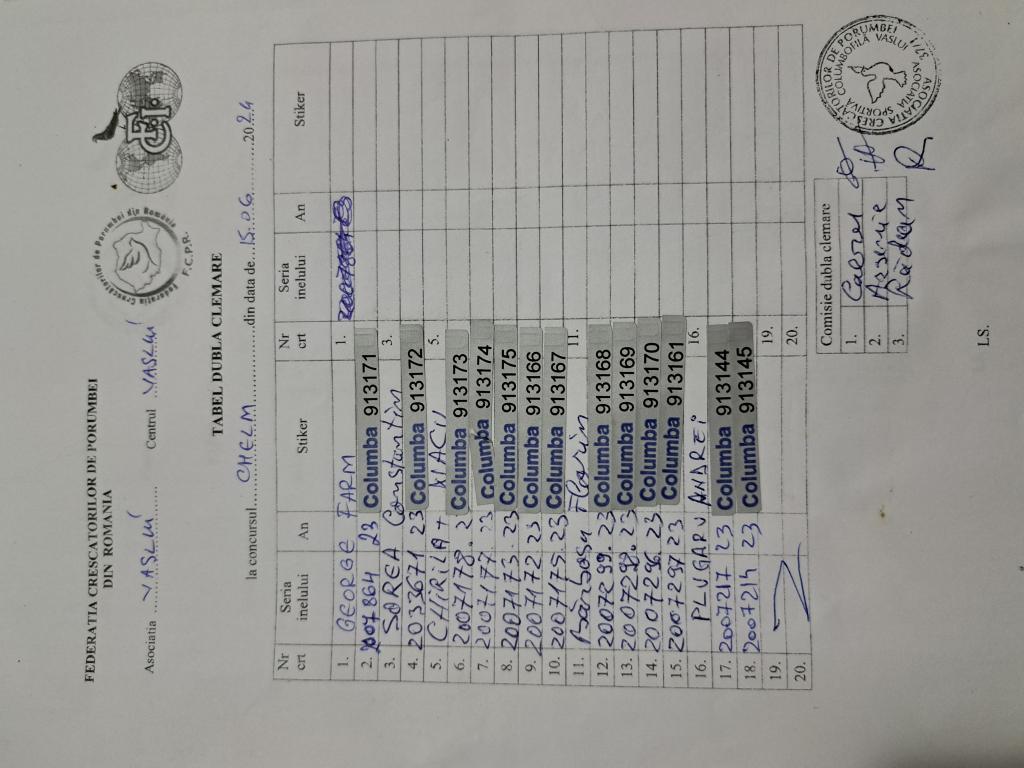 FEDERATIA CRESCATORILOR DE PORUMBEI
DIN ROMANIA
Federatia Crescatorilor de Porumbei din România
F.C.P.R.
Asociatia VASLUI Centrul VASLUI
TABEL DUBLA CLEMARE
la concursul CHELM din data de 15.06 2024
Nr crt Seria inelului An Stiker Nr crt Seria inelului An Stiker
1. GEORGE FARM 1.
2. 2007864 23 Columba 913171
3. SOREA Constantin 3.
4. 2033671 23 Columba 913172
5. CHIRILA + 5.
6. 2007178. 2 Columba 913173
7. 2007177. 23 Columba 913174
8. 2007173. 23 Columba 913175
9. 2007172 23 Columba 913166
10. 2007179. 23 Columba 913167
11. Bârboșu Florin 11.
12. 2007299. 23 Columba 913168
13. 2007298. 23 Columba 913169
14. 2007296. 23 Columba 913170
15. 2007297 23 Columba 913161
16. PLUGARU ANDREI 16.
17. 2007217 23 Columba 913144
18. 2007214 23 Columba 913145
19. 19.
20. 20.
Comisie dubla clemare
1.
2. Arsenie
3.
ASOCIATIA CRESCATORILOR DE PORUMBEI
ASOCIATIA SPORTIVĂ COLUMBOFILĂ VASLUI
371
L.S.